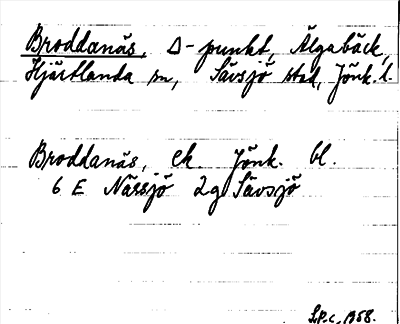 Broddanäs, Δ-punkt, Älgabäck,
Hjärtlanda sn, Sävsjö stad, Jönk. l.
Broddanäs, ek. Jönk. bl.
6 E Nässjö 2g Sävsjö
1958.